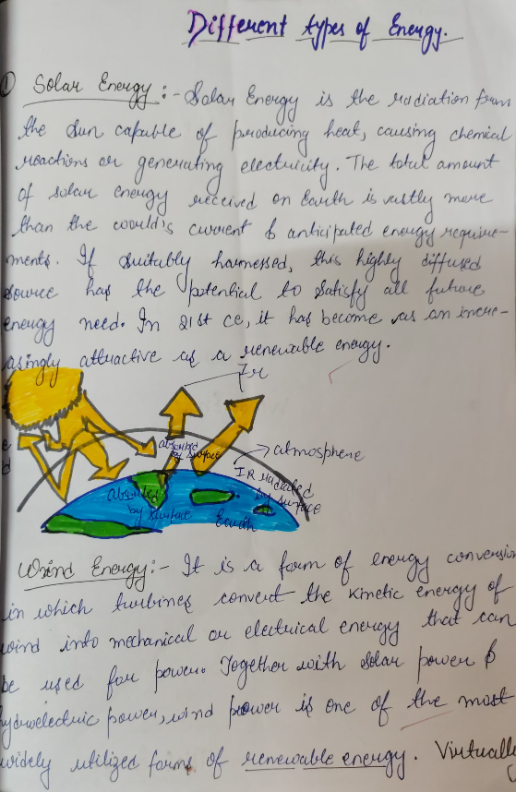 Different types of Energy.
① Solar Energy :- Solar Energy is the radiation from
the Sun capable of producing heat, causing chemical
reactions or generating electricity. The total amount
of solar energy received on Earth is vastly more
than the world's current & anticipated energy require-
ments. If suitably harnessed, this highly diffused
source has the potential to satisfy all future
energy need. In 21st ce, it has become as an incre-
asingly attractive as a renewable energy.
Ir
absorbed
by surface
atmosphere
IR radiated
by surface
absorbed
by surface
Earth
Wind Energy :- It is a form of energy conversion
in which turbines convert the kinetic energy of
wind into mechanical or electrical energy that can
be used for power. Together with solar power &
hydroelectric power, wind power is one of the most
widely utilized forms of renewable energy. Virtually